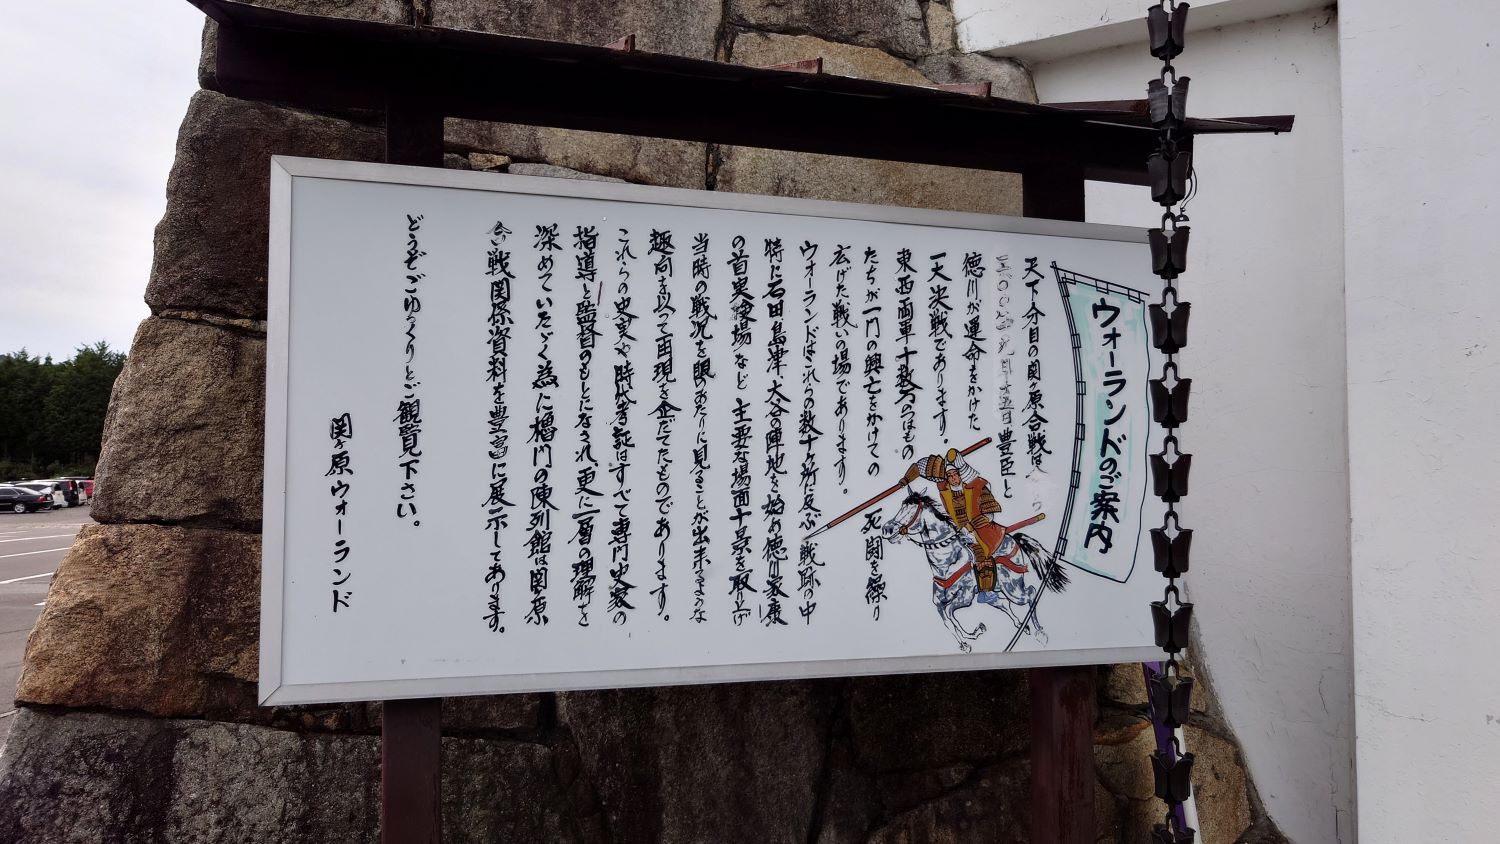 ウォーランドのご案内
天下分目の関ヶ原合戦は
九月十五日豊臣と
徳川が運命をかけた
一大決戦であります。
東西両軍十数万のつはもの
たちが一門の興亡をかけての死闘を繰り
広げた戦いの場であります。
ウォーランドはこれらの数十ヶ所に及ぶ戦跡の中
特に石田、島津、大谷の陣地を始め徳川家康
の首実検場など主要な場面十景を取り上げ
当時の戦況を眼のあたりに見ることが出来るような
趣向を以って再現を企だてたものであります。
これらの史実や時代考証はすべて専門史家の
指導と監督のもとになされ、更に一層の理解を
深めていたゞく為に櫓門の陳列館は関ヶ原
合戦関係資料を豊富に展示してあります。
どうぞごゆっくりとご観覧下さい。
関ヶ原ウォーランド